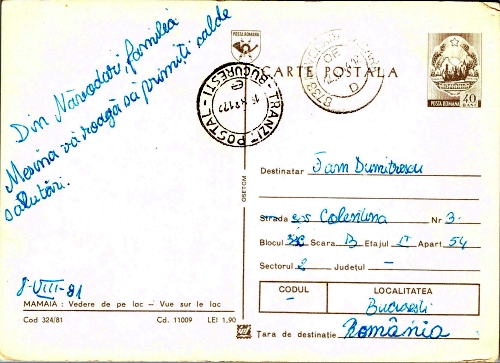 Din Năvodari, familia
Mesina vă roagă să primiți calde
salutări.
8-VIII-81
MAMAIA : Vedere de pe lac – Vue sur le lac
Cod 324/81 Cd. 11009 LEI 1,90
POSTA ROMANA
CARTE POSTALA
TRANZIT POSTAL
BUCURESTI
POSTA ROMANA 40 BANI
OSETCM
Destinatar Fam Dumitrescu
Strada șos Colentina Nr 3.
Blocul Scara B Etajul Apart 54
Sectorul 2 Județul –
CODUL LOCALITATEA
– București
Țara de destinație România